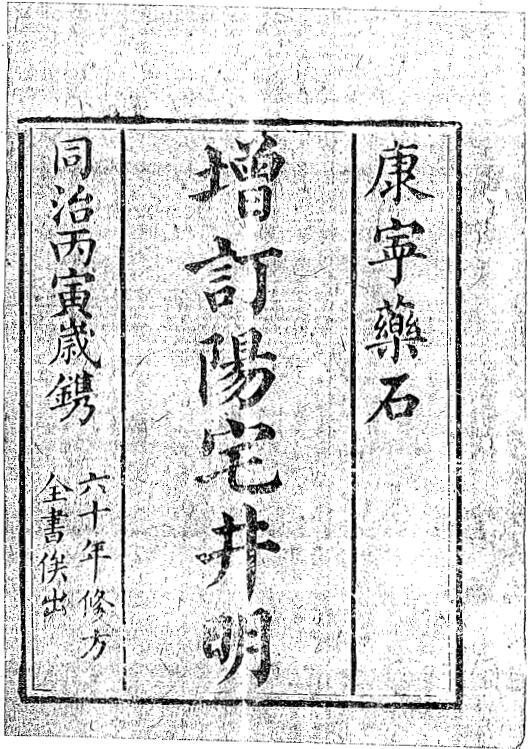 康寍藥石
增訂陽宅井明
同治丙寅歲鐫
六十年修方
全書俟出